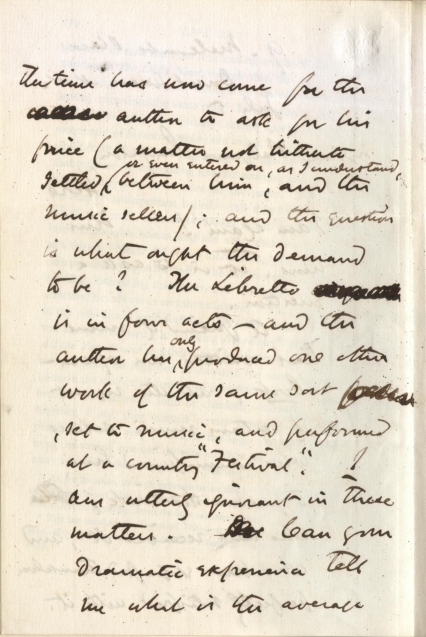 the time has now come for the
author to ask for his
price (a matter not hitherto
or even entered on, as I understand,
settled, between him, and the
music sellers); and the question
is what ought the demand
to be? The Libretto
is in four acts – and the
only
author has produced one other
work of the same sort
, set to music, and performed
at a country "Festival". I
am utterly ignorant in these
matters. Can your
dramatic experience tell
me what is the average